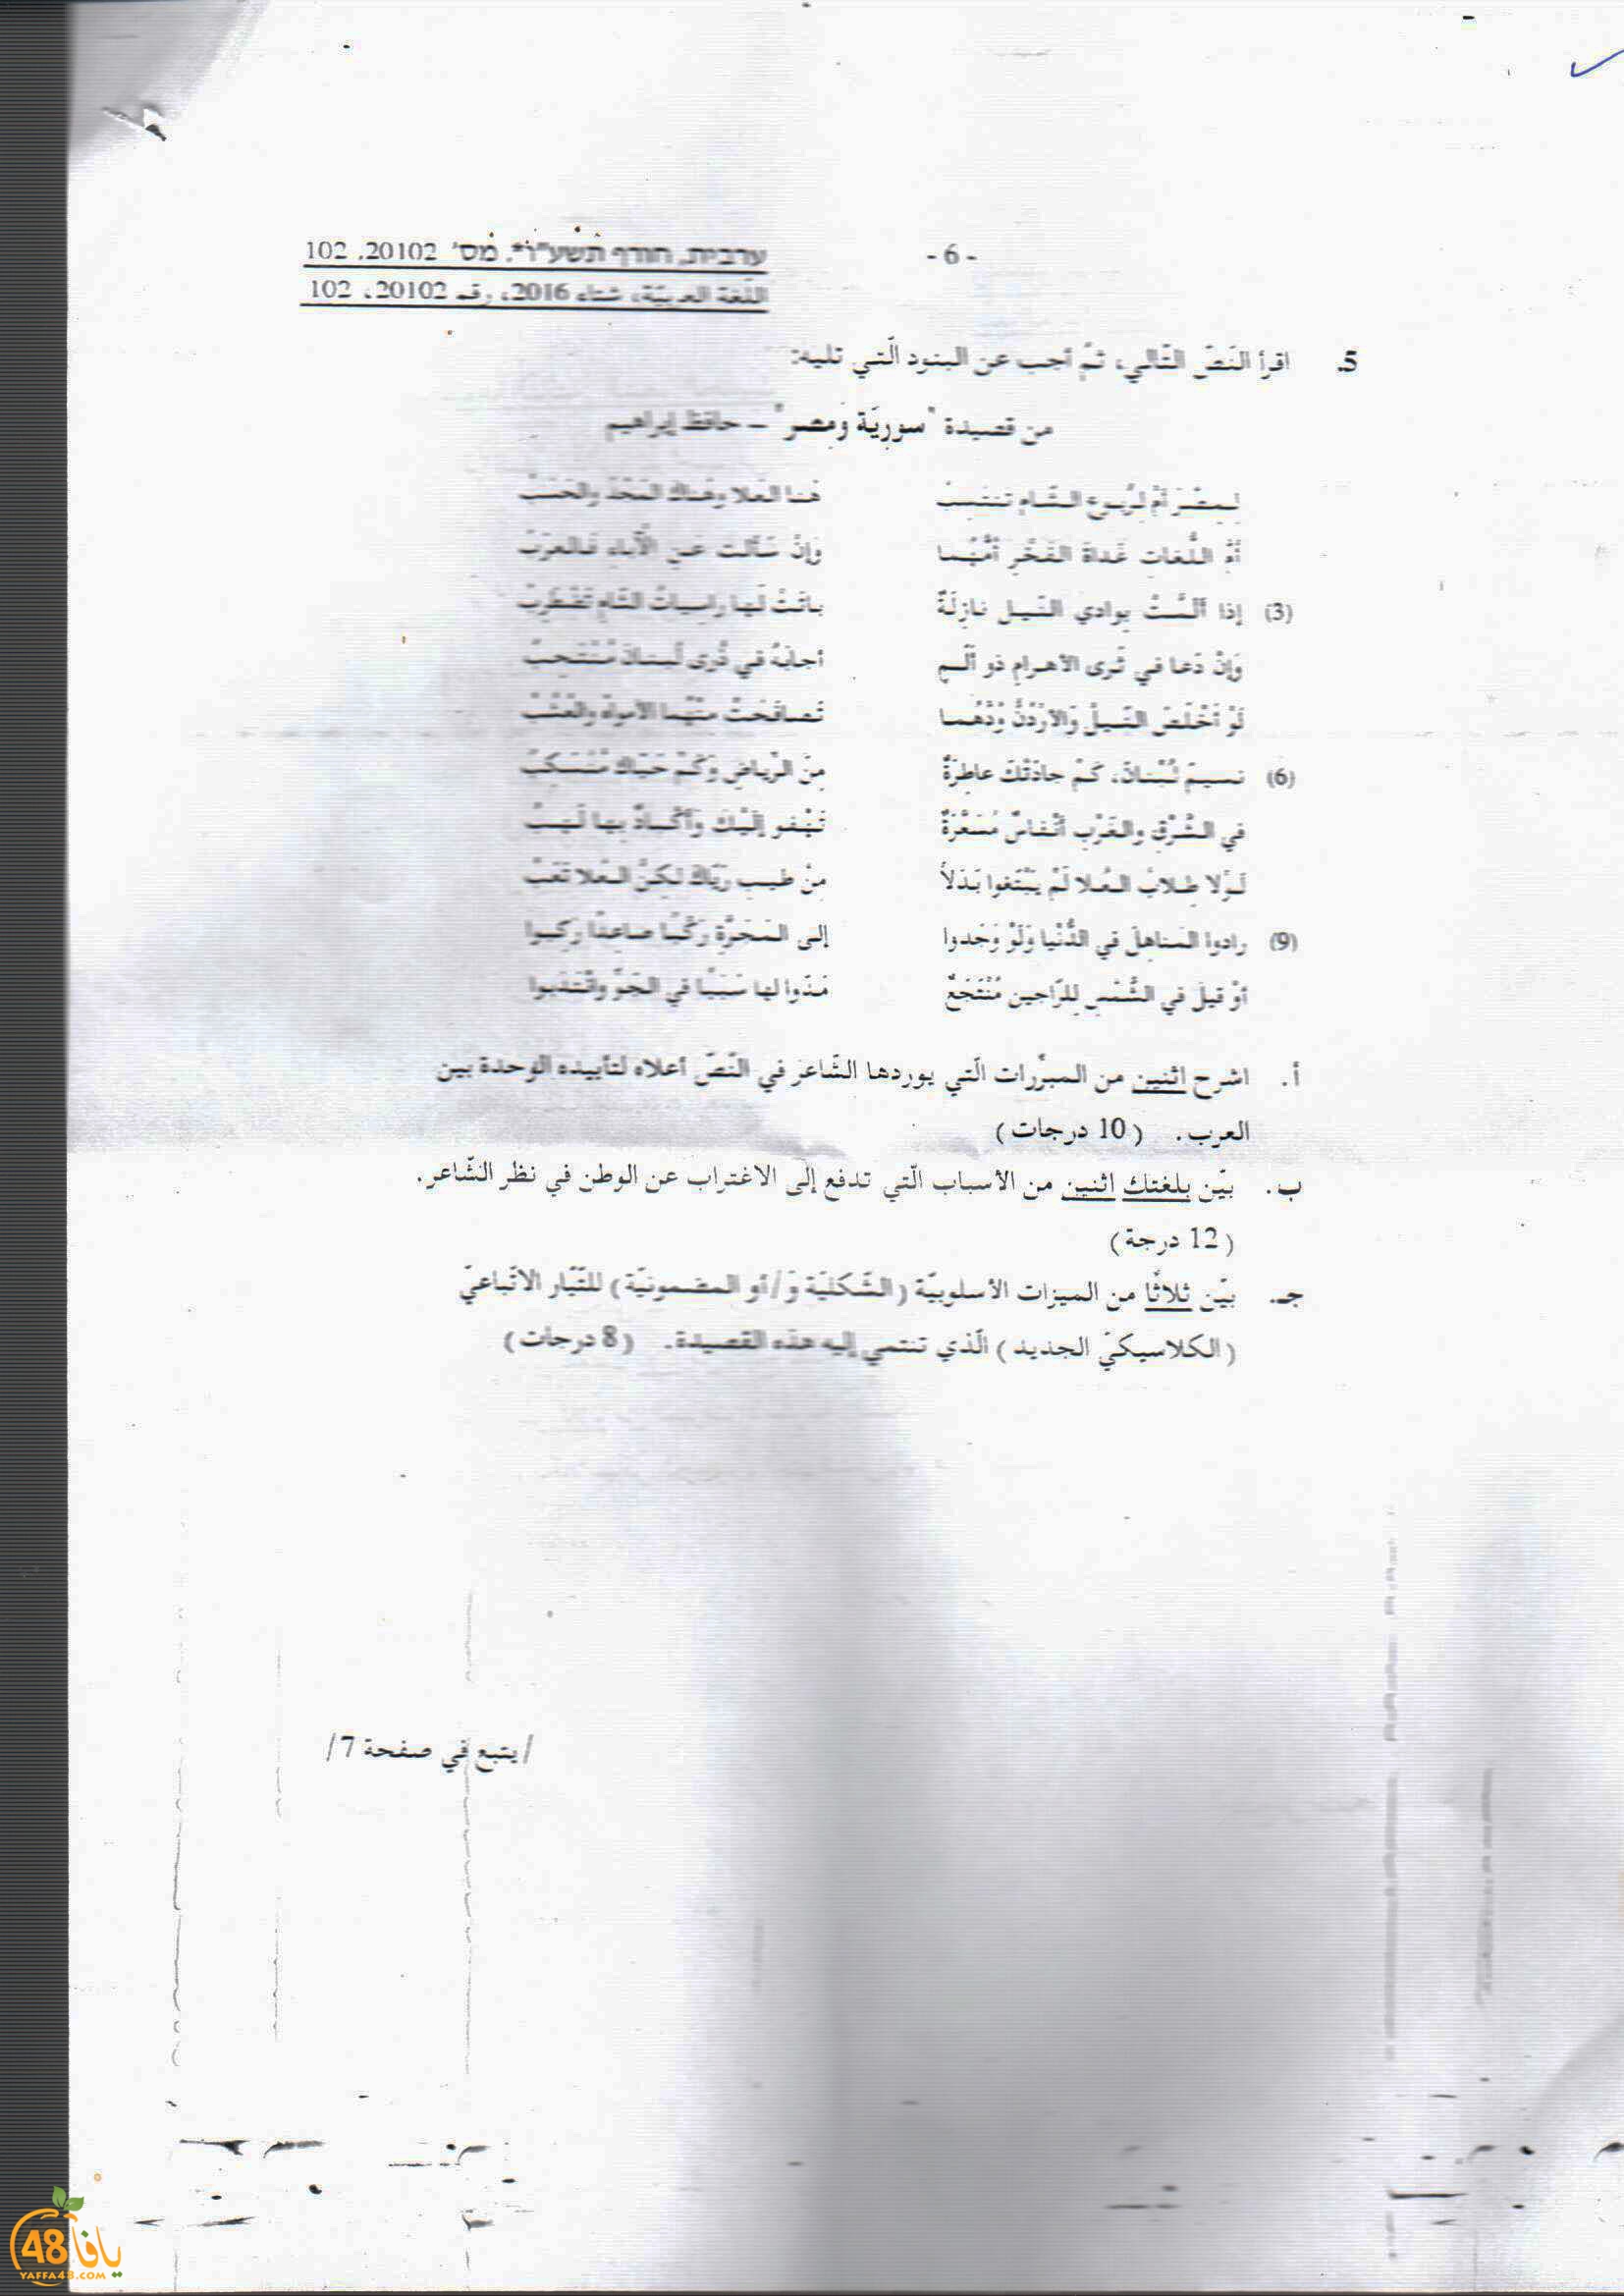 - 6 -
ערבית, חורף תשע"ו, מס' 20102, 102
اللّغة العربيّة، شتاء 2016، رقم 20102، 102
5. اقرأ النّصّ التّالي، ثمّ أجب عن البنود الّتي تليه:
من قصيدة "سوريَة وَمِصر" – حافظ إبراهيم
لِـمِـصْـرَ أَمْ لِرُبـوعِ الـشّـامِ تـنـتَـسِـبُ هُـنـا العُـلا وهُـنـاكَ المَـجْـدُ والحَـسَـبُ
أُمُّ اللُّـغـاتِ غَـداةَ الفَـخْـرِ أُمُّـهُـمـا وَإنْ سَـأَلْتَ عَـنِ الآبـاءِ فَـالـعَرَبُ
(3) إذا أَلَـمَّـتْ بِوادي النّـيـلِ نـازِلَـةٌ بـاتَـتْ لَـهـا راسِيـاتُ الشّامِ تَضْطَرِبُ
وَإنْ دَعـا فـي ثَـرى الأهـرامِ ذو أَلَـمٍ أجـابَـهُ فـي ذُرى لُـبـنـانَ مُـنْـتَـحِـبُ
لَوْ أَخْـلَـصَ النّـيـلُ وَالأرْدُنُّ وُدَّهُـمـا تَـصـافَـحَـتْ مِـنْـهُـمـا الأمواهُ والعُشُبُ
(6) نـسـيـمَ لُـبْـنـانَ، كَـمْ جادَتْكَ عاطِرَةٌ مِنَ الرّيـاضِ وَكَـمْ حَـيّـاكَ مُـنْـسَـكِـبُ
في الشَّرْقِ والغَرْبِ أنْـفـاسٌ مُسَعَّرَةٌ تَـهْـفـو إلَيْـكَ وَأكْـبـادٌ بِـهـا لَـهَـبُ
لَـوْلا طِـلابُ العُـلا لَمْ يَبْتَغوا بَـدَلًا مِنْ طيـبِ رَيّـاكَ لـكِـنَّ الـعُـلا تَعَبُ
(9) رادوا المَناهِلَ في الدُّنْيا وَلَوْ وَجَدوا إلى المَجَرَّةِ رَكْبًا صاعِدًا رَكِبوا
أوْ قيلَ في الشَّمْسِ لِلرّاجين مُنْتَجَعٌ مَـدّوا لـها سَبَبًا في الجَوِّ وانْتَدَبوا
أ. اشرح اثنين من المبرِّرات الّتي يوردها الشّاعر في النّصّ أعلاه لتأييده الوحدة بين
العرب. (10 درجات)
ب. بيّن بلغتك اثنين من الأسباب الّتي تدفع إلى الاغتراب عن الوطن في نظر الشّاعر.
(12 درجة)
جـ. بيّن ثلاثًا من الميزات الأسلوبيّة (الشّكليّة وَ/أو المضمونيّة) للتّيّار الاتّباعيّ
(الكلاسيكيّ الجديد) الّذي تنتمي إليه هذه القصيدة. (8 درجات)
/يتبع في صفحة 7/
يافا 48
YAFFA48.COM